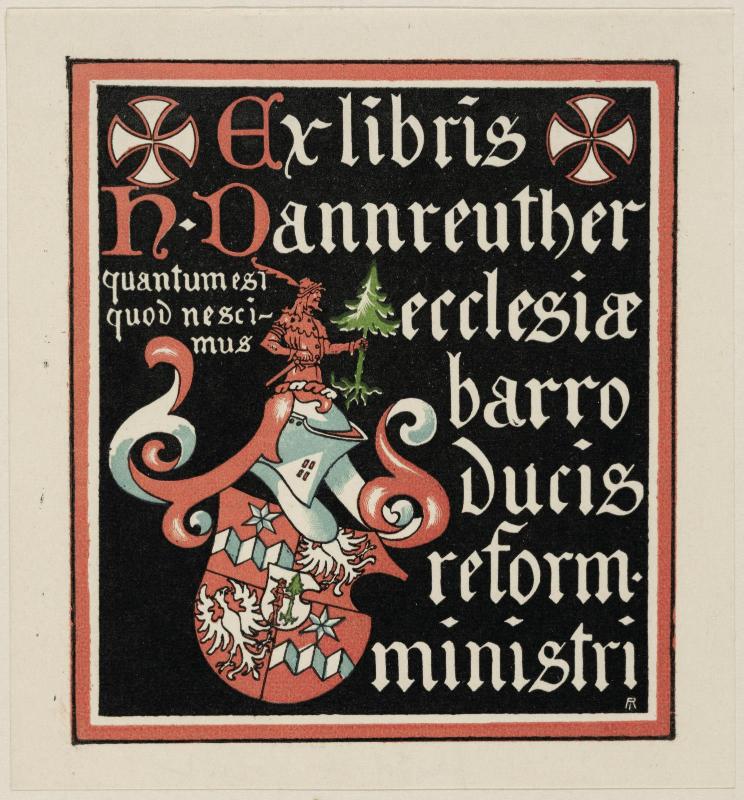 Exlibris
H. Dannreuther
quantum est
quod nesci-
mus
ecclesiæ
barro
ducis
reform.
ministri